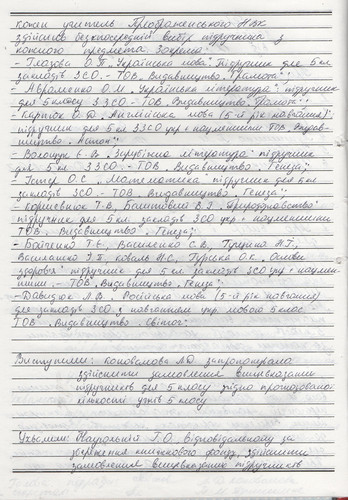 кожен учитель Преображенського НВК
здійснив безпосередній вибір підручника з
кожного предмета. Зокрема:
- Глазова О.П. „Українська мова" підручник для 5 кл
закладів ЗСО. - ТОВ „Видавництво „Грамота";
- Авраменко О.М. „Українська література" підручник
для 5 класу ЗЗСО - ТОВ „Видавництво „Грамота";
- Карпюк О.Д. „Англійська мова (5-й рік навчання)"
підручник для 5 кл. ЗЗСО укр. наупними ТОВ „Видав-
ництво „Астон";
- Волощук Є.В. „Зарубіжна література" підручник
для 5 кл. ЗЗСО - ТОВ „Видавництво „Генеза";
- Істер О.С. „Математика" підручник для 5 кл
закладів ЗСО - ТОВ „Видавництво „Генеза";
- Коршевнюк Т.В., Баштовий В.І. „Природознавство"
підручник для 5 кл. закладів ЗСО укр.
ТОВ „Видавництво „Генеза";
- Бойченко Т.Є., Василенко С.В., Гущина Н.І.,
Василашко І.П. Коваль Н.С., Гурська О.К. „Основи
здоров'я" підручник для 5 кл закладів ЗСО укр.
- ТОВ „Видавництво „Генеза";
- Давидюк Л.В. „Російська мова (5-й рік навчання)
для закладів ЗСО з навчанням укр. мовою 5 клас
ТОВ „Видавництво „Світоч".
Виступили: Коновалова Л.Ф. запропонувала
здійснити замовлення вищевказаних
підручників для 5 класу згідно прогнозованої
кількості учнів 5 класу
Ухвалили: Г.О. відповідальному за
збереження книжкового фонду, здійснити
замовлення вищевказаних підручників